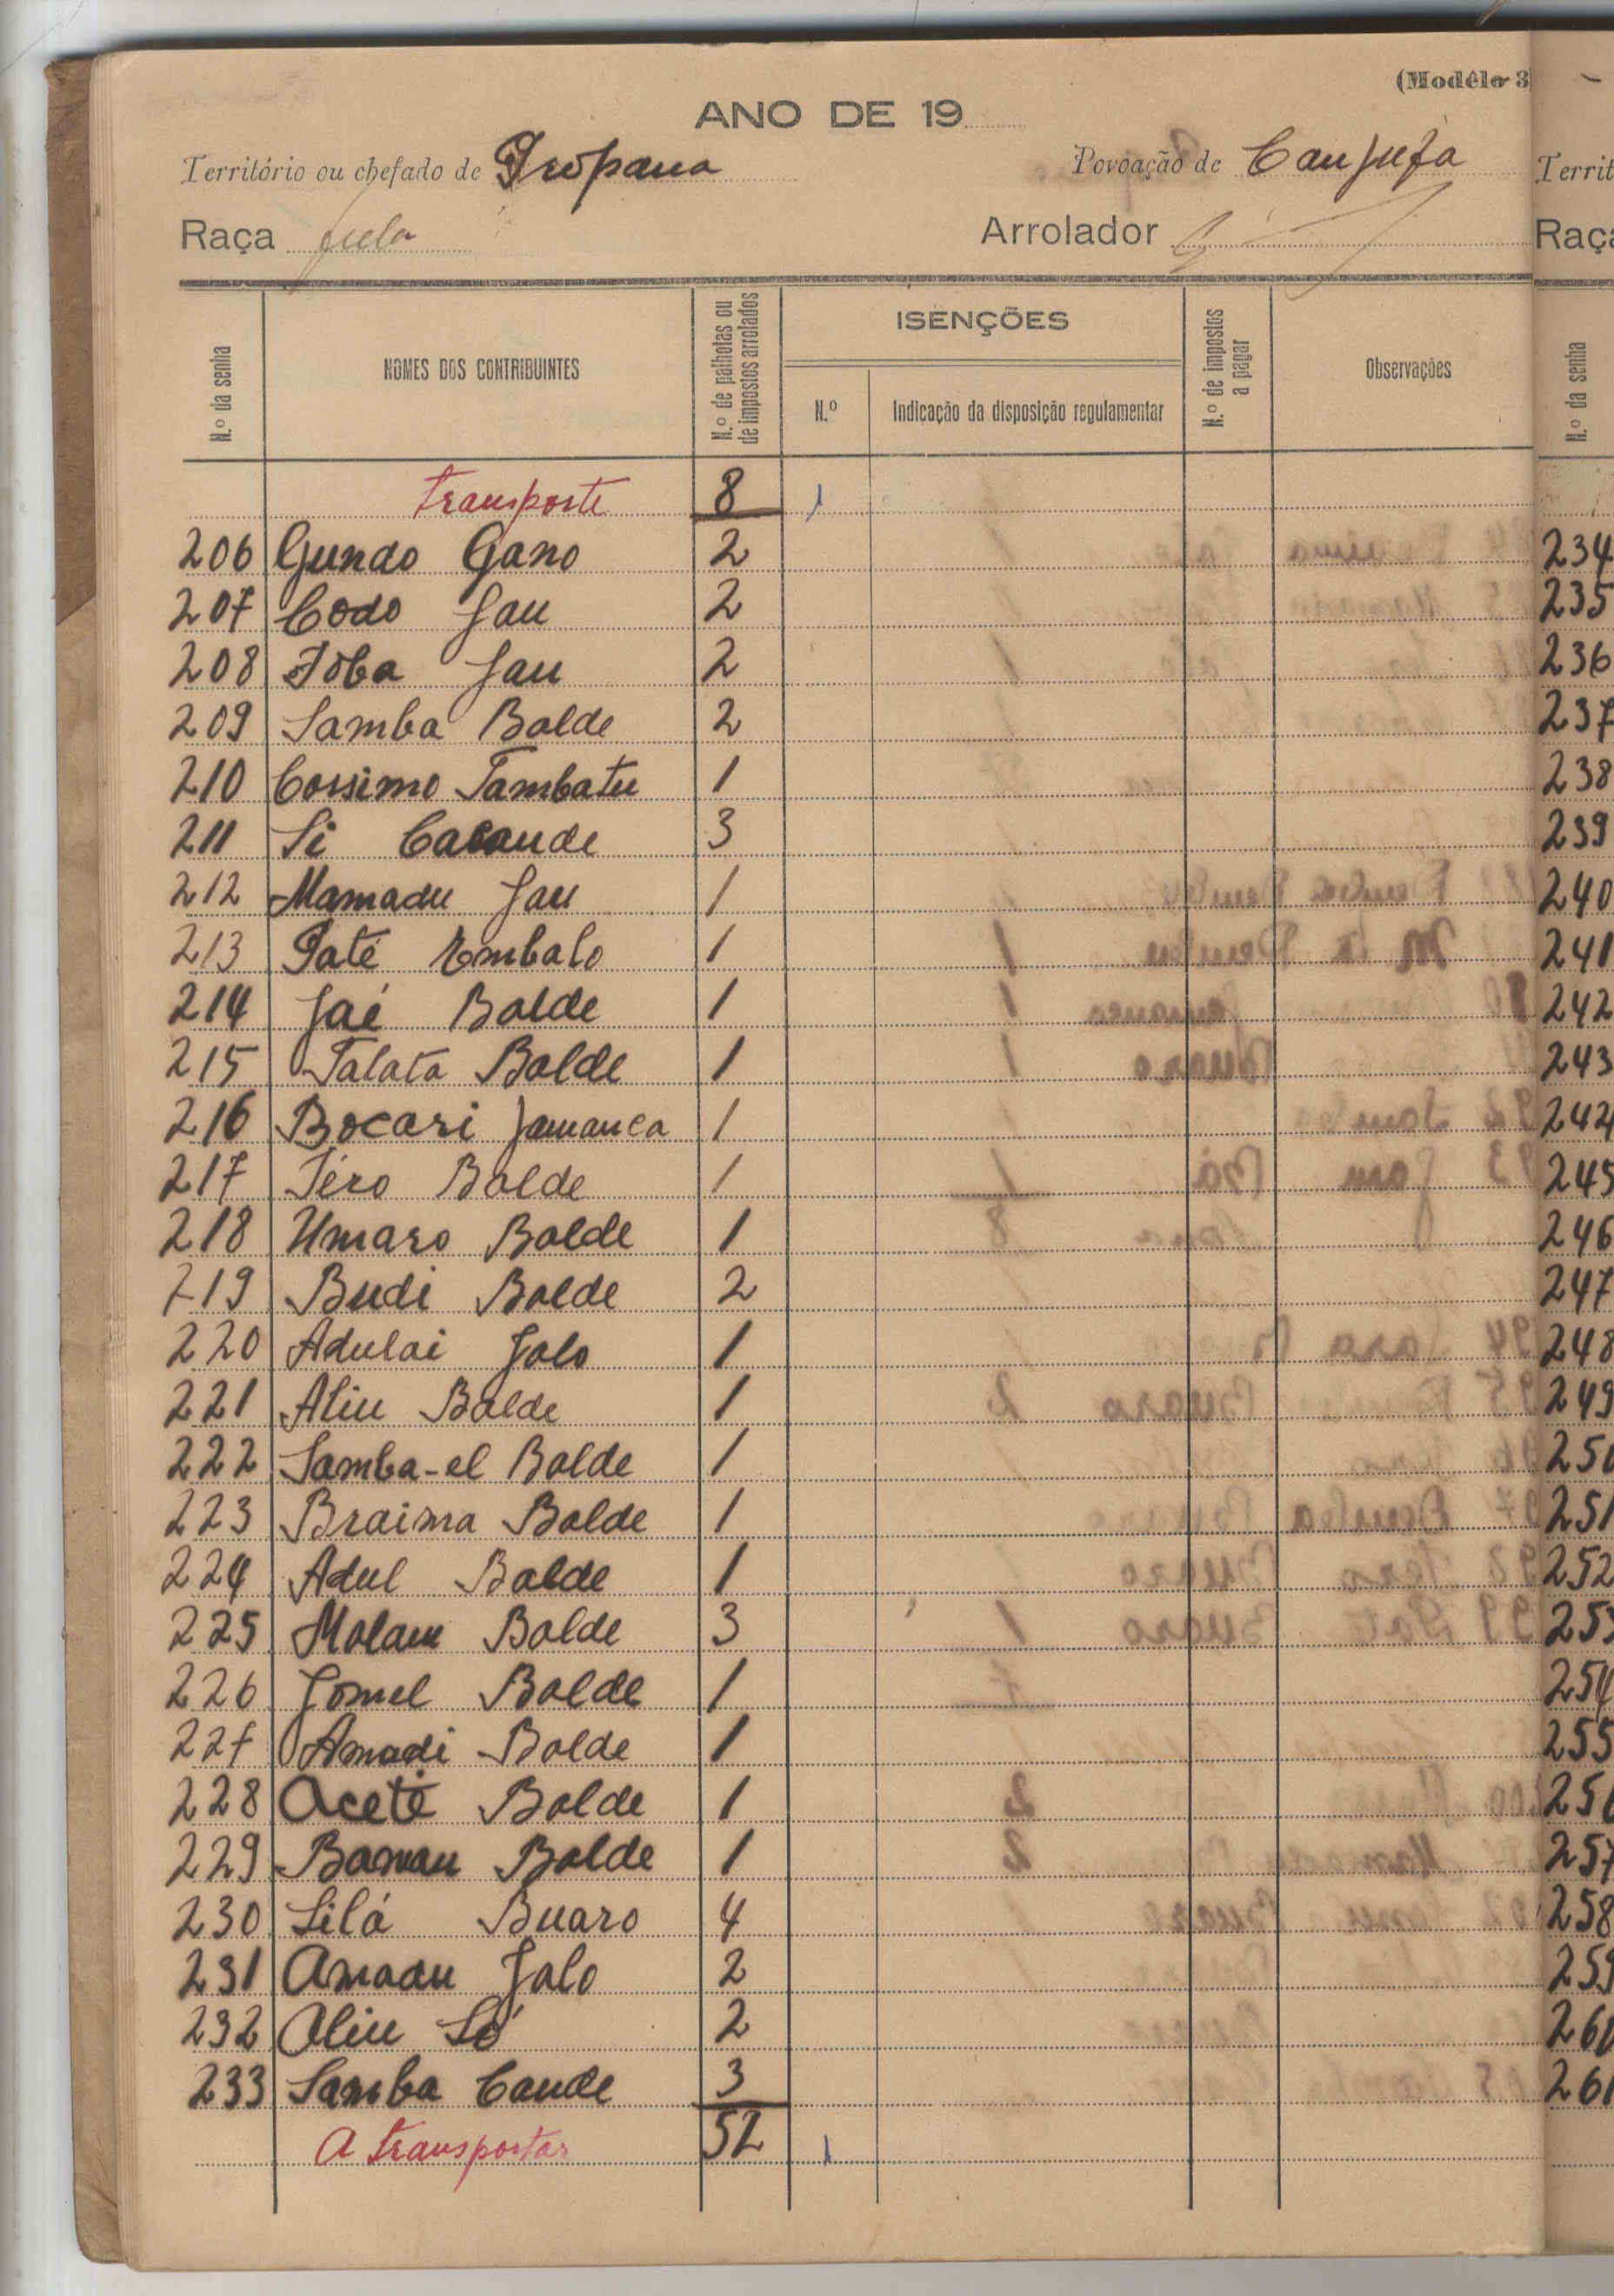 (Modêlo 3
ANO DE 19
Território ou chefado de Propana Povoação de Canjufa
Raça fula Arrolador
N.º da senha NOMES DOS CONTRIBUINTES N.º de palhotas ou de impostos arrolados ISENÇÕES N.º Indicação da disposição regulamentar N.º de impostos a pagar Observações
Transporte 8 1
206 Gundo Gano 2
207 Codo Jau 2
208 Joba Jau 2
209 Samba Balde 2
210 Cossimo Tambatu 1
211 Si Cacande 3
212 Mamadu Jau 1
213 Paté Embalo 1
214 Jaé Balde 1
215 Talata Balde 1
216 Bocari Jamanca 1
217 Téro Balde 1
218 Umaro Balde 1
219 Budi Balde 2
220 Adulai Jalo 1
221 Aliu Balde 1
222 Samba-el Balde 1
223 Braima Balde 1
224 Adul Balde 1
225 Molam Balde 3
226 Jomel Balde 1
227 Amadi Balde 1
228 Acete Balde 1
229 Baman Balde 1
230 Silá Buaro 4
231 Amadu Jalo 2
232 Aliu Só 2
233 Samba Cande 3
A transportar 52 1
Territ
Raça
N.º da senha
234
235
236
237
238
239
240
241
242
243
244
245
246
247
248
249
250
251
252
253
254
255
256
257
258
259
260
261